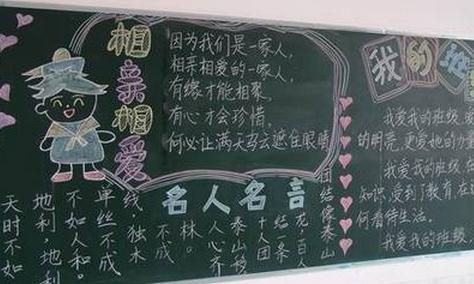 相亲相爱
因为我们是一家人，
相亲相爱的一家人，
有缘才能相聚，
有心才会珍惜，
何必让满天乌云遮住眼睛
我的班
名人名言
团结像泰山
龙；百人
结一条
十人团
泰山移
人心齐
林。
不成
线，独木
单丝不成
不如人和。
地利，地利
天时不如
我爱我的班级，
的明亮，更爱她的力量
我爱我的班级，
知识，受到了教育，在
何看待生活。
我爱我的班级